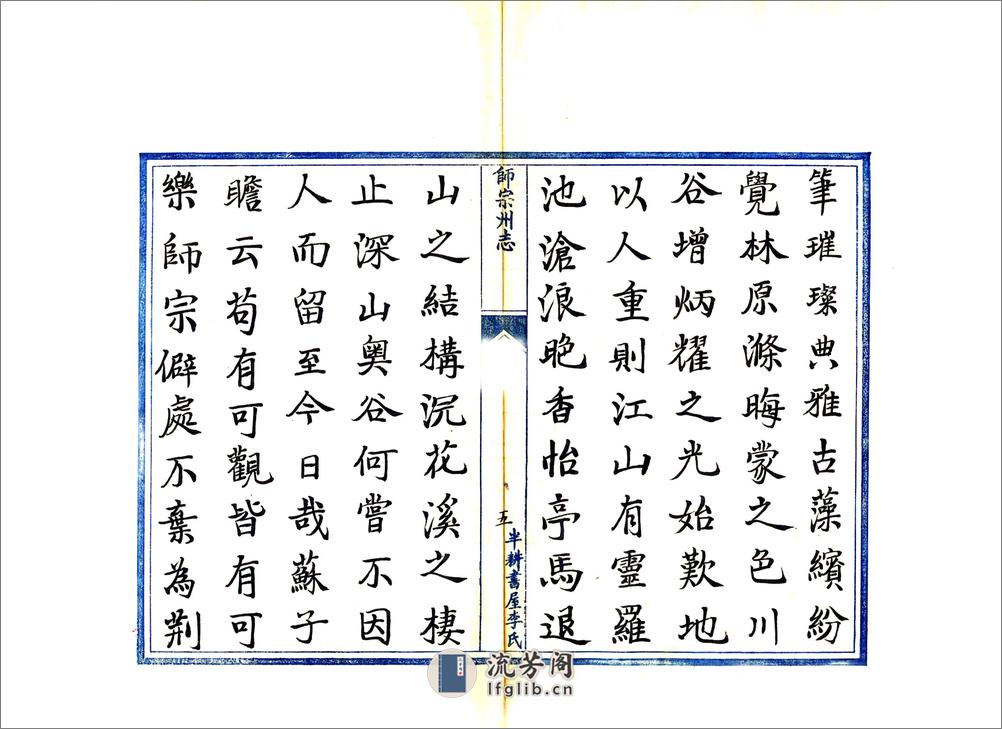 筆璀璨典雅古藻繽紛
覺林原滌晦蒙之色川
谷增炳耀之光始歎地
以人重則江山有靈羅
池滄浪晚香怡亭馬退
師宗州志
五
半耕書屋李氏
山之結構沉花溪之棲
止深山奧谷何嘗不因
人而留至今日哉蘇子
瞻云苟有可觀皆有可
樂師宗僻處不棄為荆
流芳阁
lfglib.cn